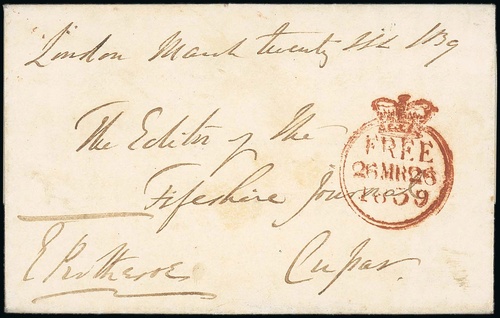 London March twenty six 1839
The Editor of the
FREE
26 MR 26
1839
Fifeshire Journal
E Protheroe
Cupar